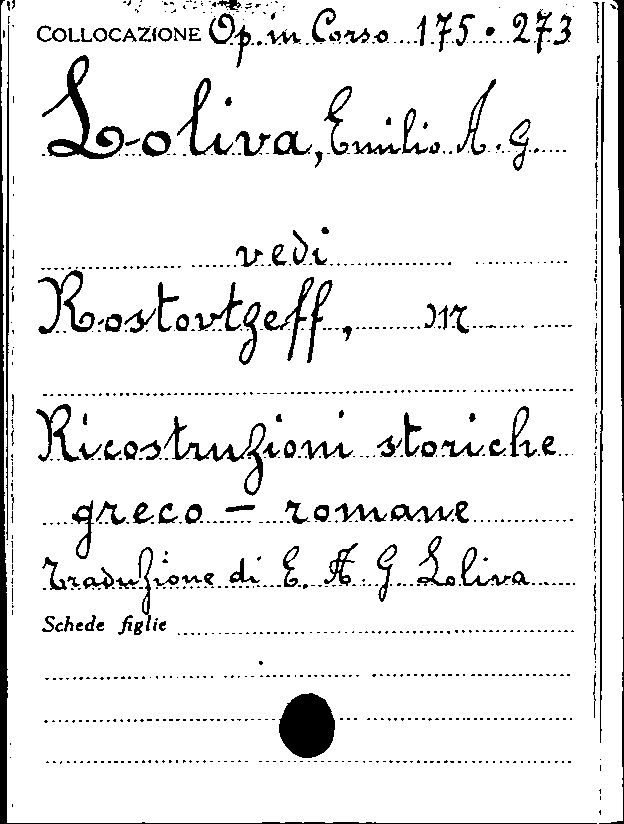 COLLOCAZIONE Op. in Corso 175 • 273
Loliva, Emilio A. G.
vedi
Rostovtzeff, M
Ricostruzioni storiche
greco – romane
Traduzione di E. A. G Loliva
Schede figlie